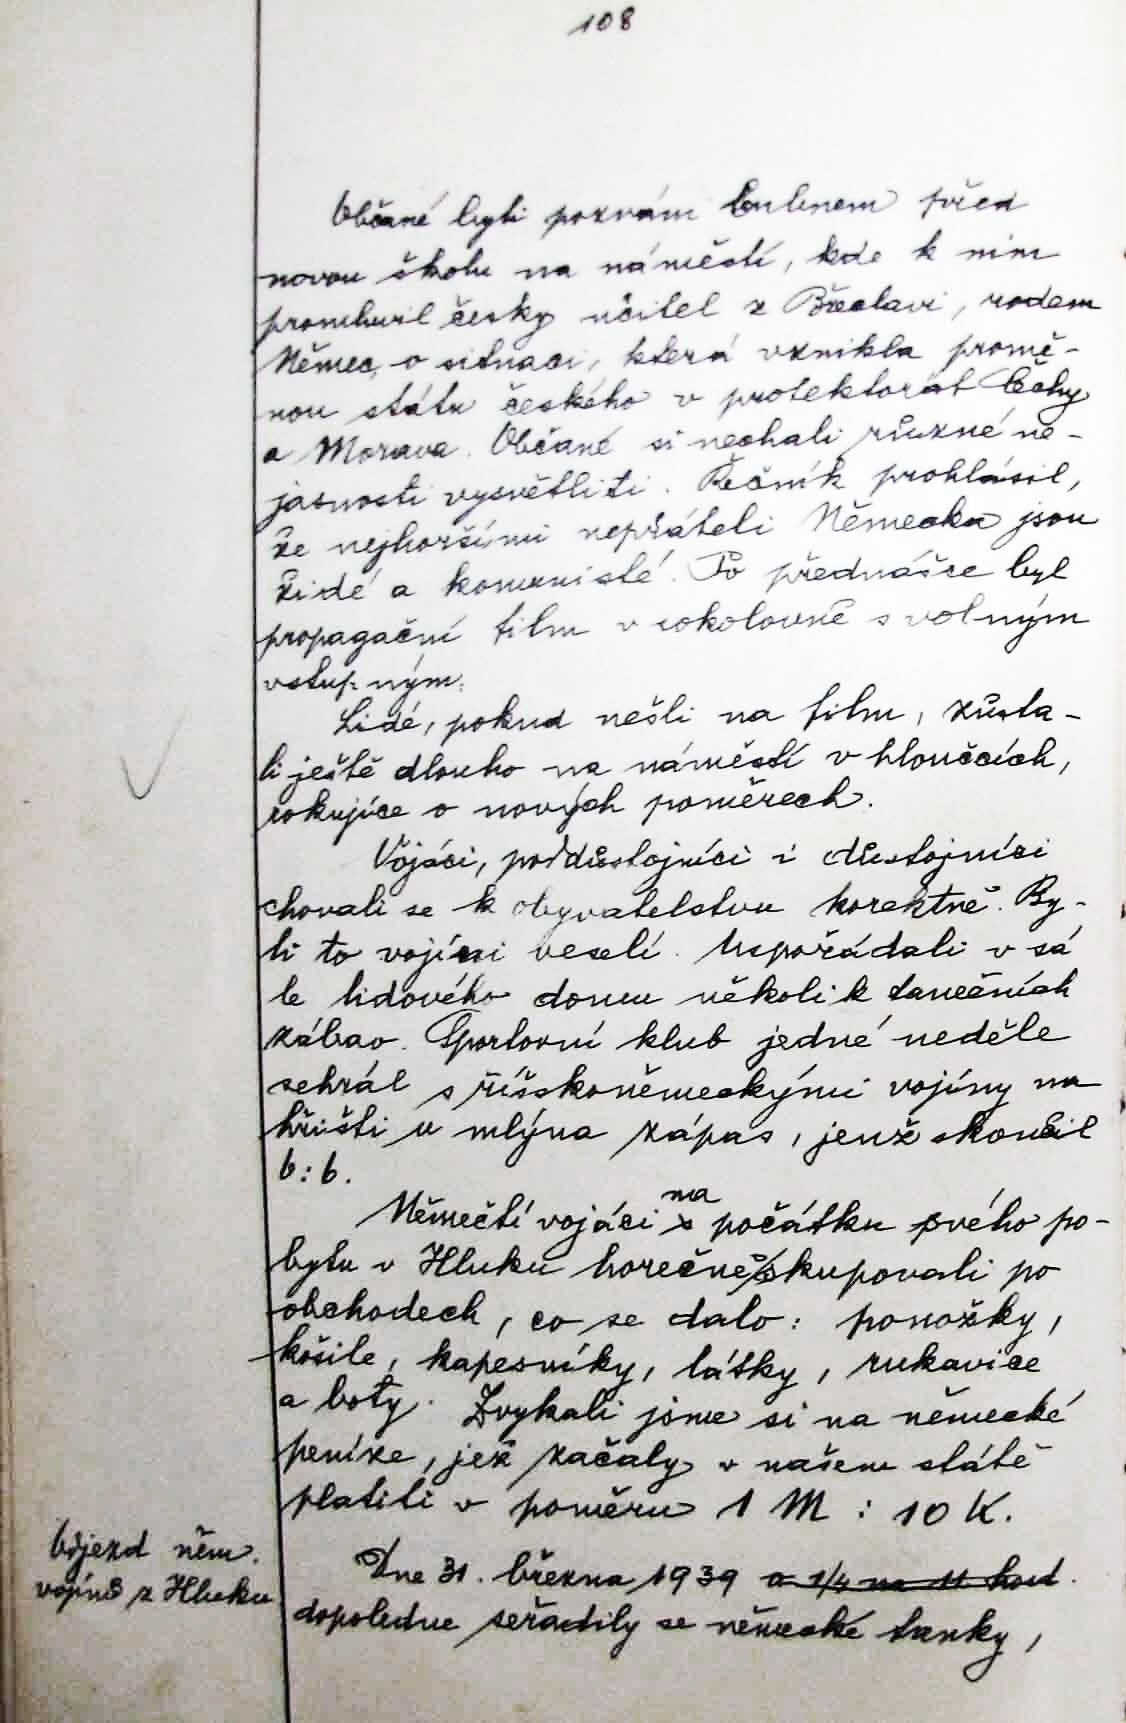 108
Občané byli pozváni bubnem před
novou školu na náměstí, kde k nim
promluvil česky učitel z Břeclavi, rodem
Němec, o situaci, která vznikla promě-
nou státu českého v protektorát Čechy
a Morava. Občané si nechali různé ne-
jasnosti vysvětliti. Řečník prohlásil,
že nejhoršími nepřáteli Německa jsou
židé a komunisté. Po přednášce byl
propagační film v sokolovně s volným
vstupným.
Lidé, pokud nešli na film, zůsta-
li ještě dlouho na náměstí v hloučcích,
rokujíce o nových poměrech.
Vojáci, poddůstojníci i důstojníci
chovali se k obyvatelstvu korektně. By-
li to vojíni veselí. Uspořádali v sá
le lidového domu několik tanečních
zábav. Sportovní klub jedné neděle
sehrál s říšskoněmeckými vojíny na
hřišti u mlýna zápas, jenž skončil
6:6.
Němečtí vojáci na počátku svého po-
bytu v Hluku horečně skupovali po
obchodech, co se dalo: ponožky,
košile, kapesníky, látky, rukavice
a boty. Zvykali jsme si na německé
peníze, jež začaly v našem státě
platiti v poměru 1 M : 10 K.
Odjezd něm.
vojínů z Hluku
Dne 31. března 1939 o 1/4 na 11 hod.
dopoledne seřadily se německé tanky,